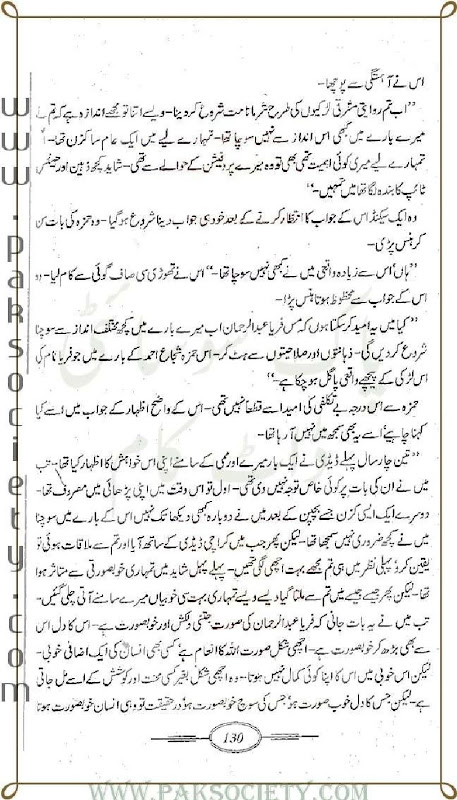 WWW.PAKSOCIETY.COM
www.paksociety.com
اس نے آہستگی سے پوچھا۔
’’اب تم روایتی مشرقی لڑکیوں کی طرح شرمانا مت شروع کر دینا۔ ویسے اتنا تو مجھے اندازہ ہے کہ تم نے
میرے بارے میں کبھی اس انداز سے نہیں سوچا تھا۔ تمہارے لیے میں ایک عام سا کزن تھا۔
تمہارے لیے میری کوئی اہمیت تھی بھی تو وہ میرے پروفیشن کے حوالے سے تھی۔ شاید کچھ ذہین اور جینئس
ٹائپ کا بندہ لگا تھا میں تمہیں۔‘‘
وہ ایک سیکنڈ اس کے جواب کا انتظار کرنے کے بعد خود ہی جواب دینا شروع ہو گیا۔ وہ حمزہ کی بات سن
کر ہنس پڑی۔
’’ہاں‘ اس سے زیادہ واقعی میں نے کبھی نہیں سوچا تھا۔‘‘ اس نے تھوڑی سی صاف گوئی سے کام لیا۔ وہ
اس کے جواب سے محظوظ ہوتا ہنس پڑا۔
’’کیا میں یہ امید کر سکتا ہوں کہ مس فریا عبدالرحمان اب میرے بارے میں کچھ مختلف انداز سے سوچنا
شروع کر دیں گی۔ ذہانتوں اور صلاحیتوں سے ہٹ کر۔ اس حمزہ شجاع احمد کے بارے میں جو فریا نام کی
اس لڑکی کے پیچھے واقعی پاگل ہو چکا ہے۔‘‘
حمزہ سے اس درجہ بے تکلفی کی امید اسے قطعاً نہیں تھی۔ اس کے واضح اظہار کے جواب میں اسے کیا
کہنا چاہیے‘ اسے یہ بھی سمجھ میں نہیں آ رہا تھا۔
’’تین چار سال پہلے ڈیڈی نے ایک بار میرے اور ممی کے سامنے اپنی اس خواہش کا اظہار کیا تھا۔ تب
میں نے ان کی بات پر کوئی خاص توجہ نہیں دی تھی۔ اول تو اس وقت میں اپنی پڑھائی میں مصروف تھا۔
دوسرے ایک ایسی کزن جسے بچپن کے بعد میں نے دوبارہ کبھی دیکھا تک نہیں اس کے بارے میں سوچنا
میں نے کچھ ضروری نہیں سمجھا تھا۔ لیکن پھر جب میں کراچی ڈیڈی کے ساتھ آیا اور تم سے ملاقات ہوئی تو
یقین کرو پہلی نظر میں ہی تم مجھے بہت اچھی لگی تھیں۔ پہلے پہل شاید میں تمہاری خوبصورتی سے متاثر ہوا
تھا۔ لیکن پھر جیسے جیسے میں تم سے ملتا گیا ویسے ویسے تمہاری بہت سی خوبیاں میرے سامنے آتی چلی گئیں۔
تب میں نے یہ بات جانی کہ فریا عبدالرحمان کی صورت جتنی دلکش اور خوبصورت ہے۔ اس کا دل اس
سے بھی بڑھ کر خوبصورت ہے۔ اچھی شکل صورت اللہ کا انعام ہے‘ کسی بھی انسان کی ایک اضافی خوبی۔
لیکن اس خوبی میں اس کا اپنا کوئی کمال نہیں ہوتا۔ وہ اچھی شکل بغیر کسی محنت اور کوشش کے اسے مل جاتی
ہے۔ لیکن جس کا دل خوب صورت ہو‘ جس کی سوچ خوبصورت ہو‘ درحقیقت تو وہی انسان خوبصورت ہوتا
130
WWW.PAKSOCIETY.COM